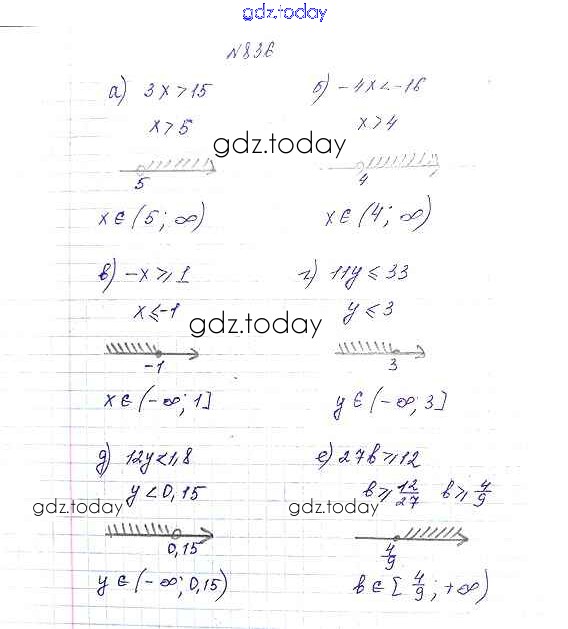 gdz.today
№836
а) 3x>15
x>5
5
x∈(5; ∞)
б) -4x<-16
x>4
4
x∈(4; ∞)
gdz.today
в) -x⩾1
x⩽-1
-1
x∈(-∞; 1]
г) 11y⩽33
y⩽3
3
y∈(-∞; 3]
gdz.today
д) 12y<1,8
y<0,15
0,15
y∈(-∞; 0,15)
е) 27b⩾12
b⩾12/27 b⩾4/9
4/9
b∈[4/9; +∞)
gdz.today
gdz.today